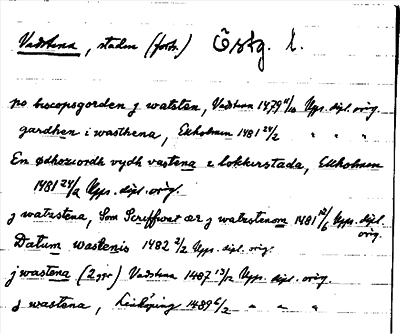 Vadstena, staden (forts.) Östg. L.
po bscopsgorden j watsten, Vadstena 1479 4/10 Upps. dipl. orig.
gardhen i wasthena, Ekholmen 1481 24/2 " " "
En ødhoziordh vydh vastena i lokkerstada, Ekholmen
1481 24/2 Upps. dipl. orig.
j watzstena, Som Sceffwat ær j watzstenom 1481 12/6 Upps. dipl. orig.
Datum wastenis 1482 2/2 Upps. dipl. orig.
j wastena (2 ggr) Vadstena 1487 13/12 Upps. dipl. orig.
j wastena, Linköping 1489 6/2 " " "